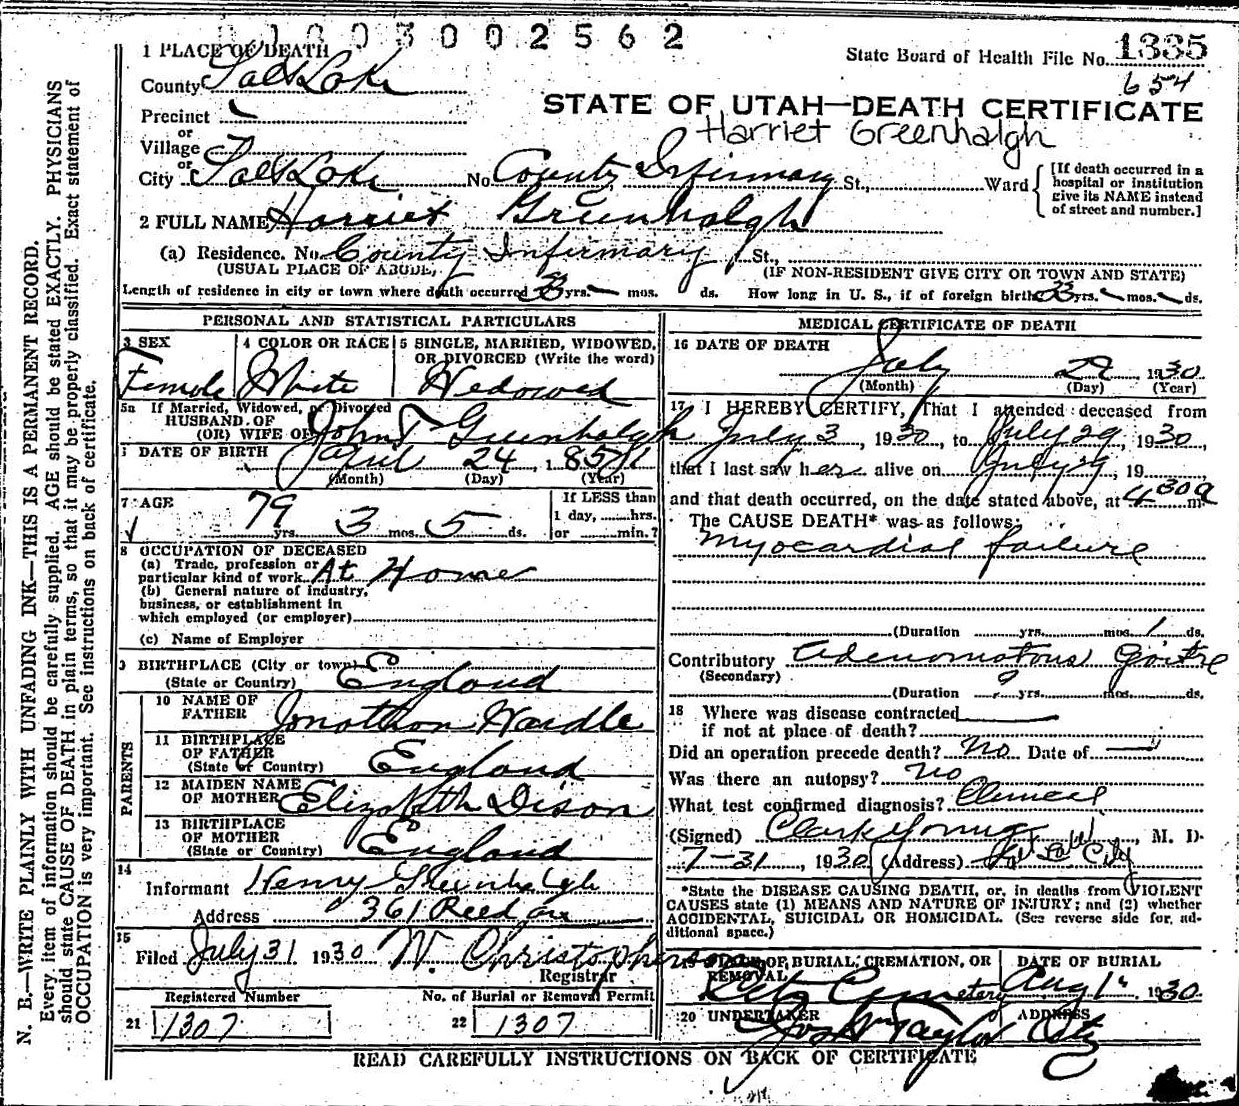 0 0 0 3 0 0 2 5 6 2
1 PLACE OF DEATH
State Board of Health File No. 1335
654
County Salt Lake
STATE OF UTAH—DEATH CERTIFICATE
Precinct
Harriet Greenhalgh
or
Village
or
City Salt Lake No. County Infirmary St., Ward
[If death occurred in a hospital or institution give its NAME instead of street and number.]
2 FULL NAME Harriet Greenhalgh
(a) Residence. No. County Infirmary St.,
(USUAL PLACE OF ABODE) (IF NON-RESIDENT GIVE CITY OR TOWN AND STATE)
Length of residence in city or town where death occurred 33 yrs. — mos. ds. How long in U. S., if of foreign birth 33 yrs. — mos. — ds.
PERSONAL AND STATISTICAL PARTICULARS
3 SEX Female
4 COLOR OR RACE White
5 SINGLE, MARRIED, WIDOWED, OR DIVORCED (Write the word) Widowed
5a If Married, Widowed, or Divorced
HUSBAND OF
(OR) WIFE OF John T Greenhalgh
6 DATE OF BIRTH April 24 1851
(Month) (Day) (Year)
7 AGE 79 yrs. 3 mos. 5 ds.
If LESS than 1 day, ...... hrs. or ...... min.?
8 OCCUPATION OF DECEASED
(a) Trade, profession or
particular kind of work At Home
(b) General nature of industry,
business, or establishment in
which employed (or employer)
(c) Name of Employer
9 BIRTHPLACE (City or town)
(State or Country) England
PARENTS
10 NAME OF FATHER Jonathon Wardle
11 BIRTHPLACE OF FATHER
(State or Country) England
12 MAIDEN NAME OF MOTHER Elizabeth Dison
13 BIRTHPLACE OF MOTHER
(State or Country) England
14
Informant Henry Greenhalgh
Address 361 Reed ave
15
Filed July 31 1930 W. Christopherson
Registrar
Registered Number No. of Burial or Removal Permit
21 1307 22 1307
MEDICAL CERTIFICATE OF DEATH
16 DATE OF DEATH
July 29 1930
(Month) (Day) (Year)
17 I HEREBY CERTIFY, That I attended deceased from
July 3, 1930, to July 29, 1930,
that I last saw her alive on July 29, 19
and that death occurred, on the date stated above, at 4 30 a m
The CAUSE DEATH* was as follows:
Myocardial failure
(Duration yrs. mos. 1 ds.
Contributory Adenomatous Goitre
(Secondary)
(Duration ? yrs. mos. ds.
18 Where was disease contracted
if not at place of death?
Did an operation precede death? No Date of —
Was there an autopsy? No
What test confirmed diagnosis? Clinical
(Signed) Clark Young, M. D.
7-31, 1930 (Address) Salt Lake City
*State the DISEASE CAUSING DEATH, or, in deaths from VIOLENT
CAUSES state (1) MEANS AND NATURE OF INJURY; and (2) whether
ACCIDENTAL, SUICIDAL OR HOMICIDAL. (See reverse side for additional space.)
19 PLACE OF BURIAL, CREMATION, OR REMOVAL City Cemetery
DATE OF BURIAL Aug 1 1930
20 UNDERTAKER Jos Wm Taylor
ADDRESS City
READ CAREFULLY INSTRUCTIONS ON BACK OF CERTIFICATE
N. B.—WRITE PLAINLY WITH UNFADING INK—THIS IS A PERMANENT RECORD.
Every item of information should be carefully supplied. AGE should be stated EXACTLY. PHYSICIANS
should state CAUSE OF DEATH in plain terms, so that it may be properly classified. Exact statement of
OCCUPATION is very important. See instructions on back of certificate.